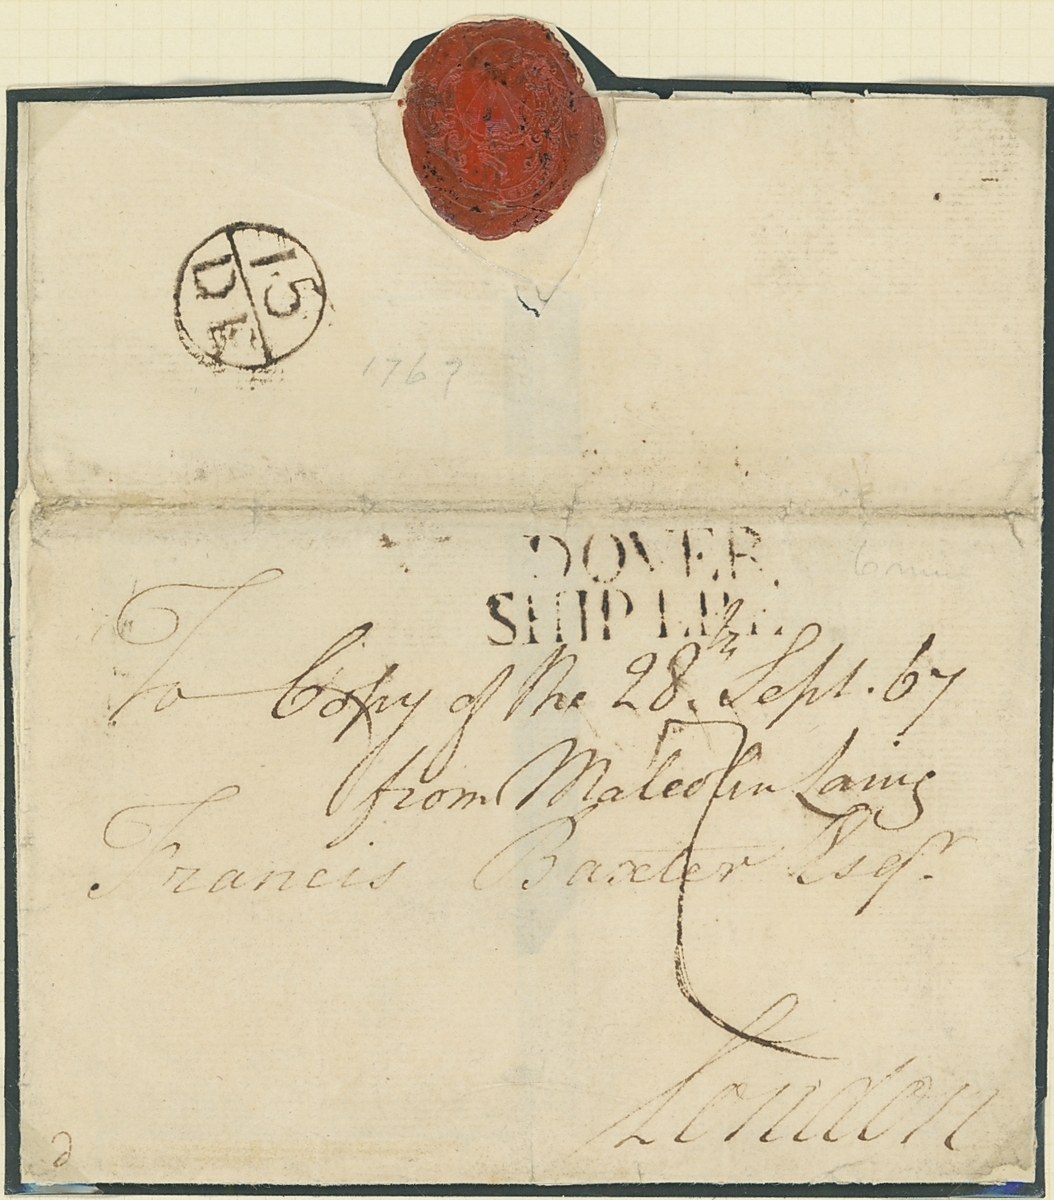 15
DE
1767
DOVER
SHIP LRE
To Copy of the 28th Sept. 67
from Malcolm Laing
Francis Baxter Esqr.
London